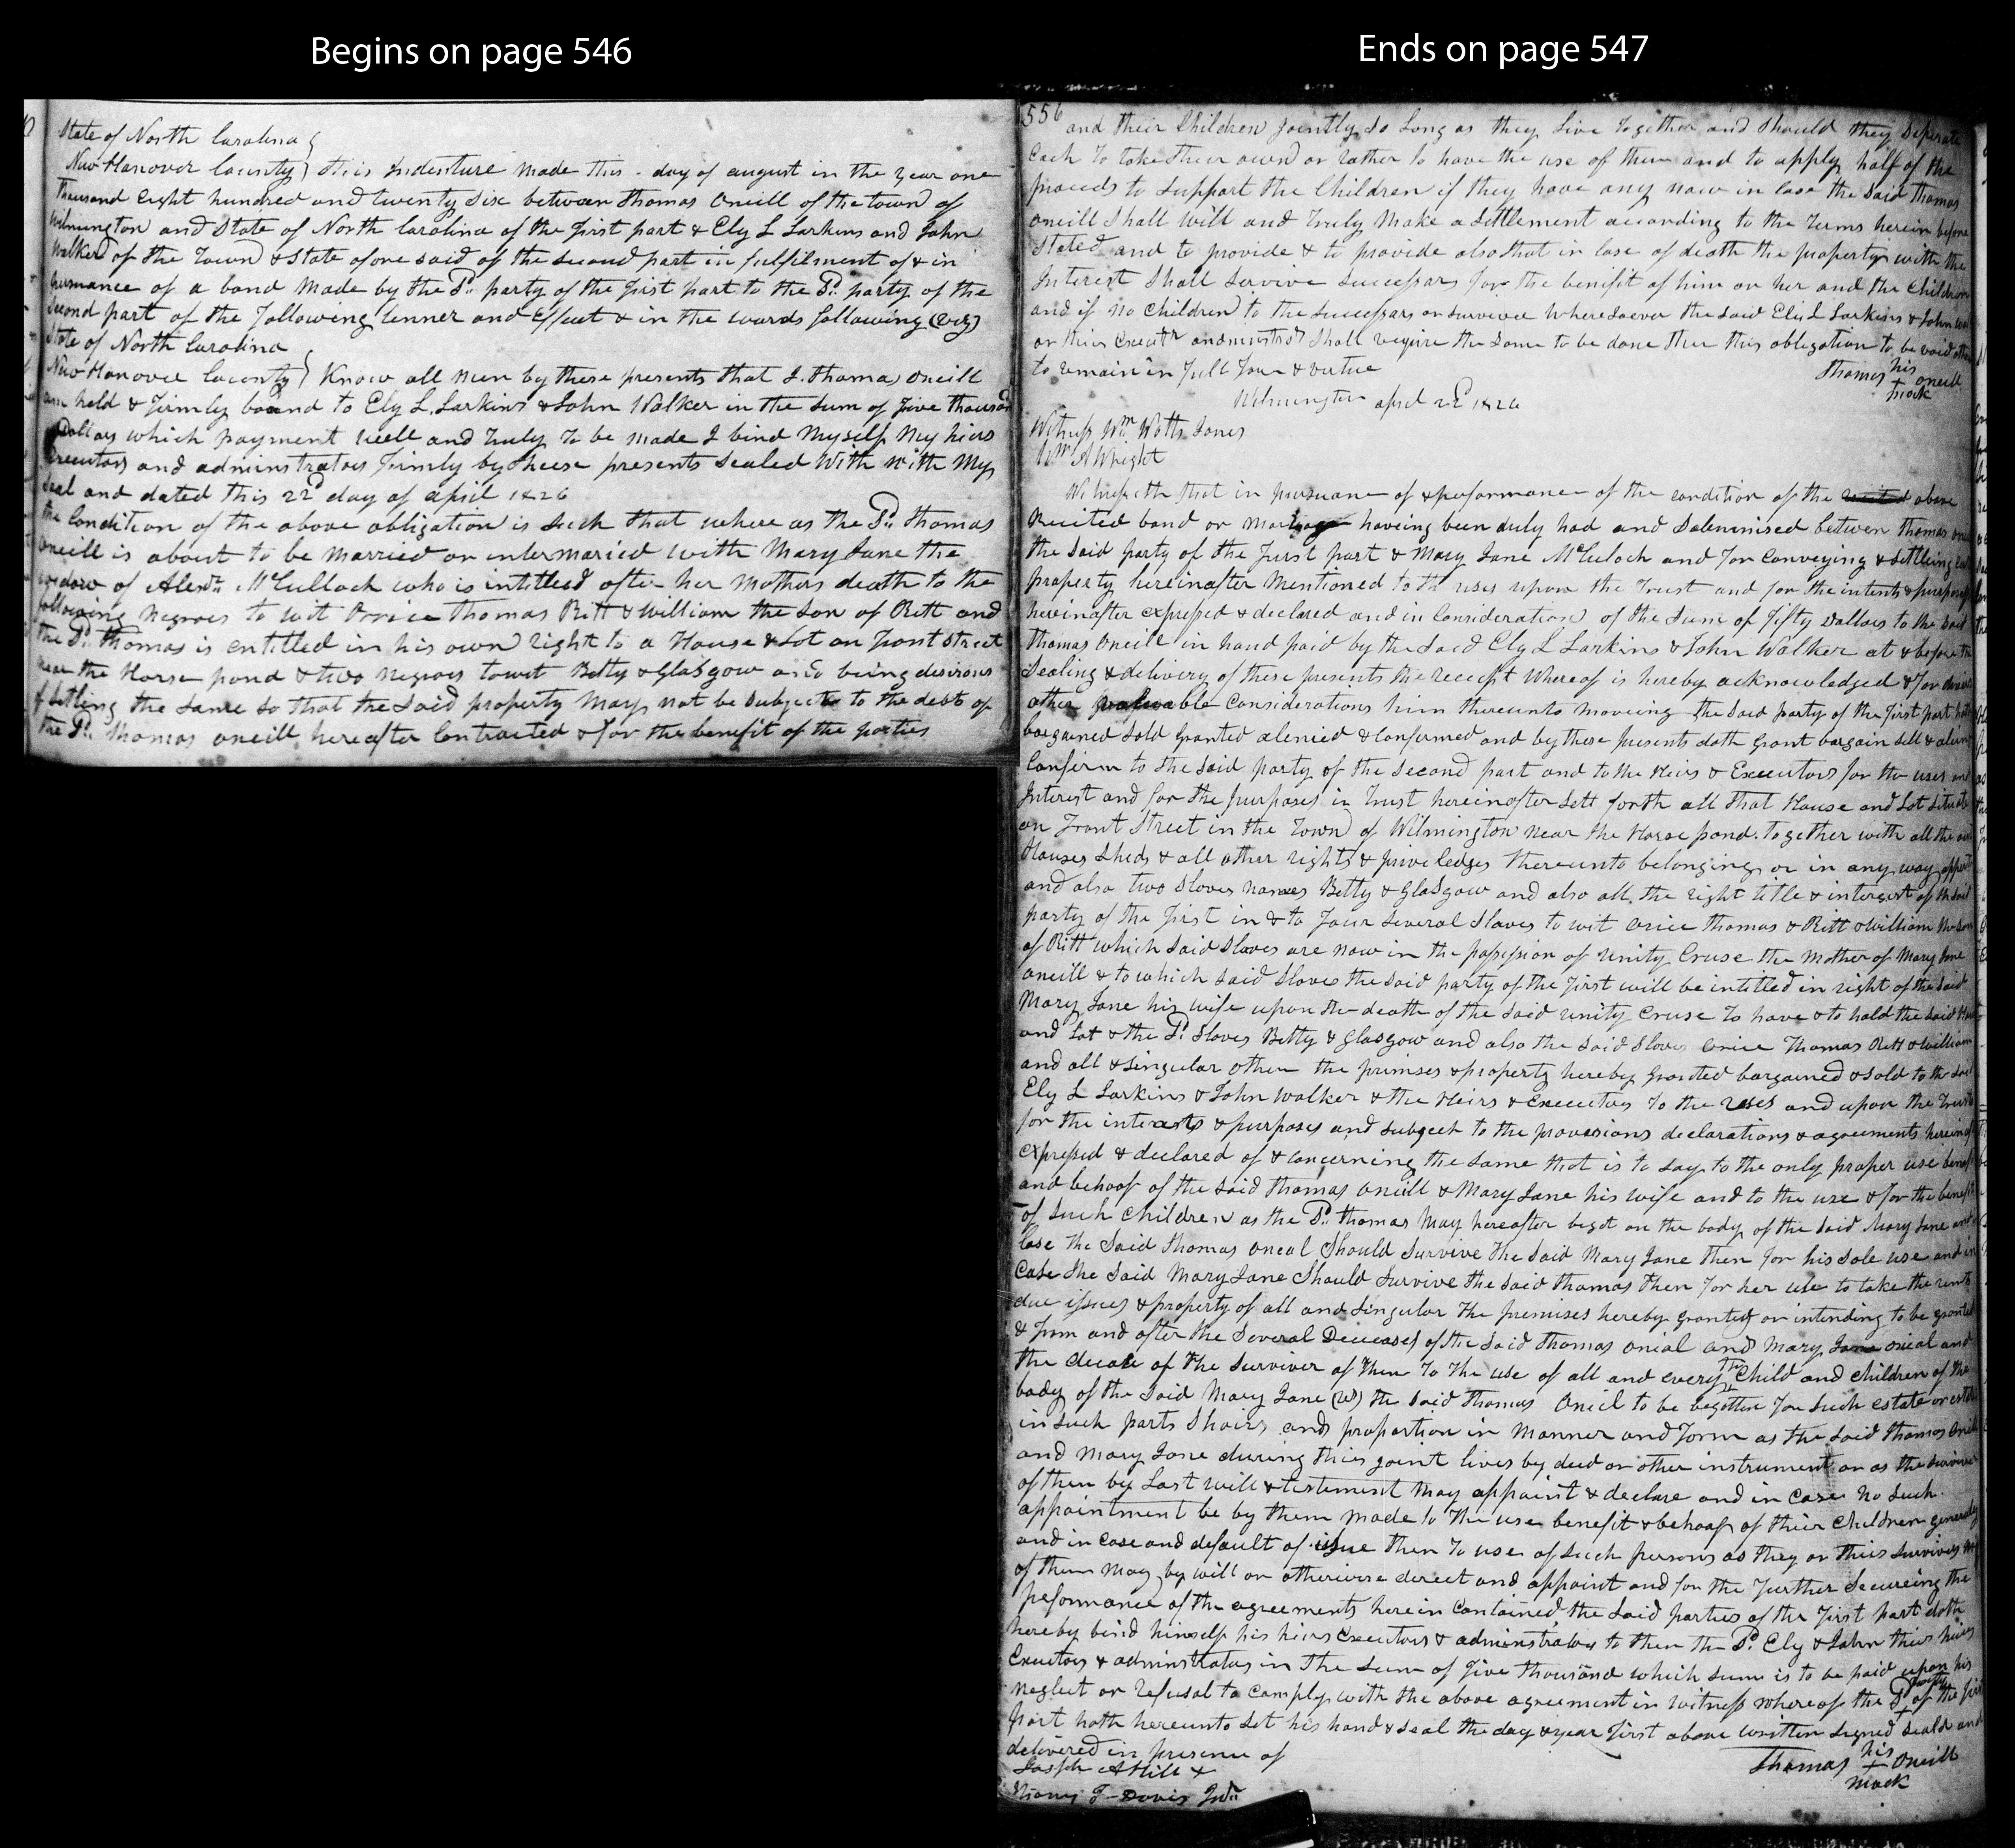 Begins on page 546
Ends on page 547
State of North Carolina
New Hanover County This Indenture made this - day of august in the year one
thousand Eight hundred and twenty Six between Thomas Oneill of the town of
Wilmington and State of North Carolina of the first part & Ely L Larkins and John
Walker of the Town & State afore said of the second part in fulfilment of & in
pursuance of a bond made by the Sd. party of the first part to the Sd. party of the
second part of the following tenner and Effect & in the words following (viz)
State of North Carolina
New Hanover County Know all men by these presents that I. Thomas Oneill
am held & firmly bound to Ely L. Larkins & John Walker in the sum of five thousand
Dollars which payment well and truly to be made I bind myself my heirs
executors and adminstrators firmly by these presents sealed With with my
seal and dated this 22d day of april 1826
the Condition of the above obligation is such that where as the Sd. Thomas
Oneill is about to be married or intermaried with Mary Jane the
widow of Alexdr. McCulloch who is intitled after her mothers death to the
following negroes to wit Thomas Ritt & William the son of Ritt and
the Sd. Thomas is entitled in his own right to a House & Lot on front street
near the Horse pond & two negroes towit Betty & Glasgow and being desirous
of setling the same so that the said property may not be subject to the debts of
the Sd. Thomas oneill hereafter Contracted & for the benefit of the parties
556
and their Children jointly so Long as they live together and should they Seperate
Each to take their own or rather to have the use of them and to apply half of the
proceeds to support the Children if they have any now in case the said Thomas
Oneill Shall will and truly make a settlement according to the terms herein before
stated and to provide & to provide also that in case of death the property with the
Interest Shall Servive successars for the benifit of him or her and the Children
and if no Children to the successars or survivor Wheresoever the said Ely L Larkins & John
or their Executr adminstrs Shall require the same to be done then this obligation to be void
to remain in full force & virtue
Thomas his + oneill
mark
Wilmington april 22d 1826
Witness Wm. Watts Jones
Wm A Wright
Witnesseth that in pursuance of & performance of the condition of the above
Recited bond or marriage haveing been duly had and Solemnised between Thomas
the said party of the first part & Mary Jane McCuloch and for Conveying & settling
property hereinafter mentioned to th uses upon the Trust and for the intents & purposes
hereinafter expressed & declared and in Consideration of the Sum of fifty Dollars to the said
Thomas Oneill in hand paid by the said Ely L Larkins & John Walker at & before the
sealing & delivery of these presents the receipt Whereof is hereby acknowledged & for divers
other valuable Considerations him thereunto moveing the said party of the first part hath
bargained sold granted aliened & Confirmed and by these presents doth grant bargain sell &
Confirm to the said party of the second part and to the Heirs & Executors for the uses and
Interest and for the purposes in Trust hereinafter Sett forth all that House and Lot situate
on Front Street in the Town of Wilmington near the Horse pond. together with all the
Houses Sheds & all other rights & priveledges thereunto belonging or in any way
and also two Slaves names Betty & Glasgow and also all the right title & interest of the said
party of the first in & to four several Slaves to wit Thomas & Ritt & William the son
of Ritt which said Slaves are now in the possession of Unity Cruse the mother of Mary Jane
Oneill & to which said Slaves the said party of the first will be intitled in right of the said
Mary Jane his wife upon the death of the said Unity Cruse To have & to hold the said House
and Lot & the Sd. Slaves Betty & Glasgow and also the said Slaves Thomas Ritt & William
and all & singular other the primises & property hereby granted bargained & sold to the said
Ely L Larkins & John Walker & the Heirs & Executors To the uses and upon the Trusts
for the interests & purposes and subject to the provisions declarations & agreements
expressed & declared of & concerning the same that is to say to the only proper use benefit
and behoof of the said Thomas Oneill & Mary Jane his wife and to the use & for the benefit
of such children as the Sd. Thomas may hereafter beget on the body of the said Mary Jane and
Case the said Thomas Oneal Should survive the said Mary Jane then for his sole use and in
Case the said Mary Jane Should survive the said Thomas then for her use to take the rents
due issues & property of all and singular the premises hereby granted or intending to be granted
& from and after the several Deceases of the said Thomas onial and Mary Jane onial and
the decase of the surviver of them To the use of all and every the Child and children of the
body of the said Mary Jane the said Thomas Oneil to be begotten for such estate or estates
in such parts Shairs and proportion in manner and form as the said Thomas
and Mary Jane during their joint lives by deed or other instrument or as the survivor
of them by Last will & testement may appoint & declare and in Case no such
appointment be by them made to the use benefit & behoof of their Children generally
and in case and default of issue then to use of such persons as they or their surviver
of them may by will or otherwise derect and appoint and for the further Secureing the
peformance of the agreements herein Contained the said parties of the first part doth
hereby bind himself his heirs Executors & adminstrators to them the Sd. Ely & John their heirs
Executors & adminstrators in the sum of five thousand which sum is to be paid upon his
neglect or refusal to comply with the above agreement in witness whereof the Sd party of the first
part hath hereunto set his hand & seal the day & year first above written signed seald and
delivered in presence of
Thomas his + Oneill
mark
Joseph A Hill &
Thomas F Davis Jur.